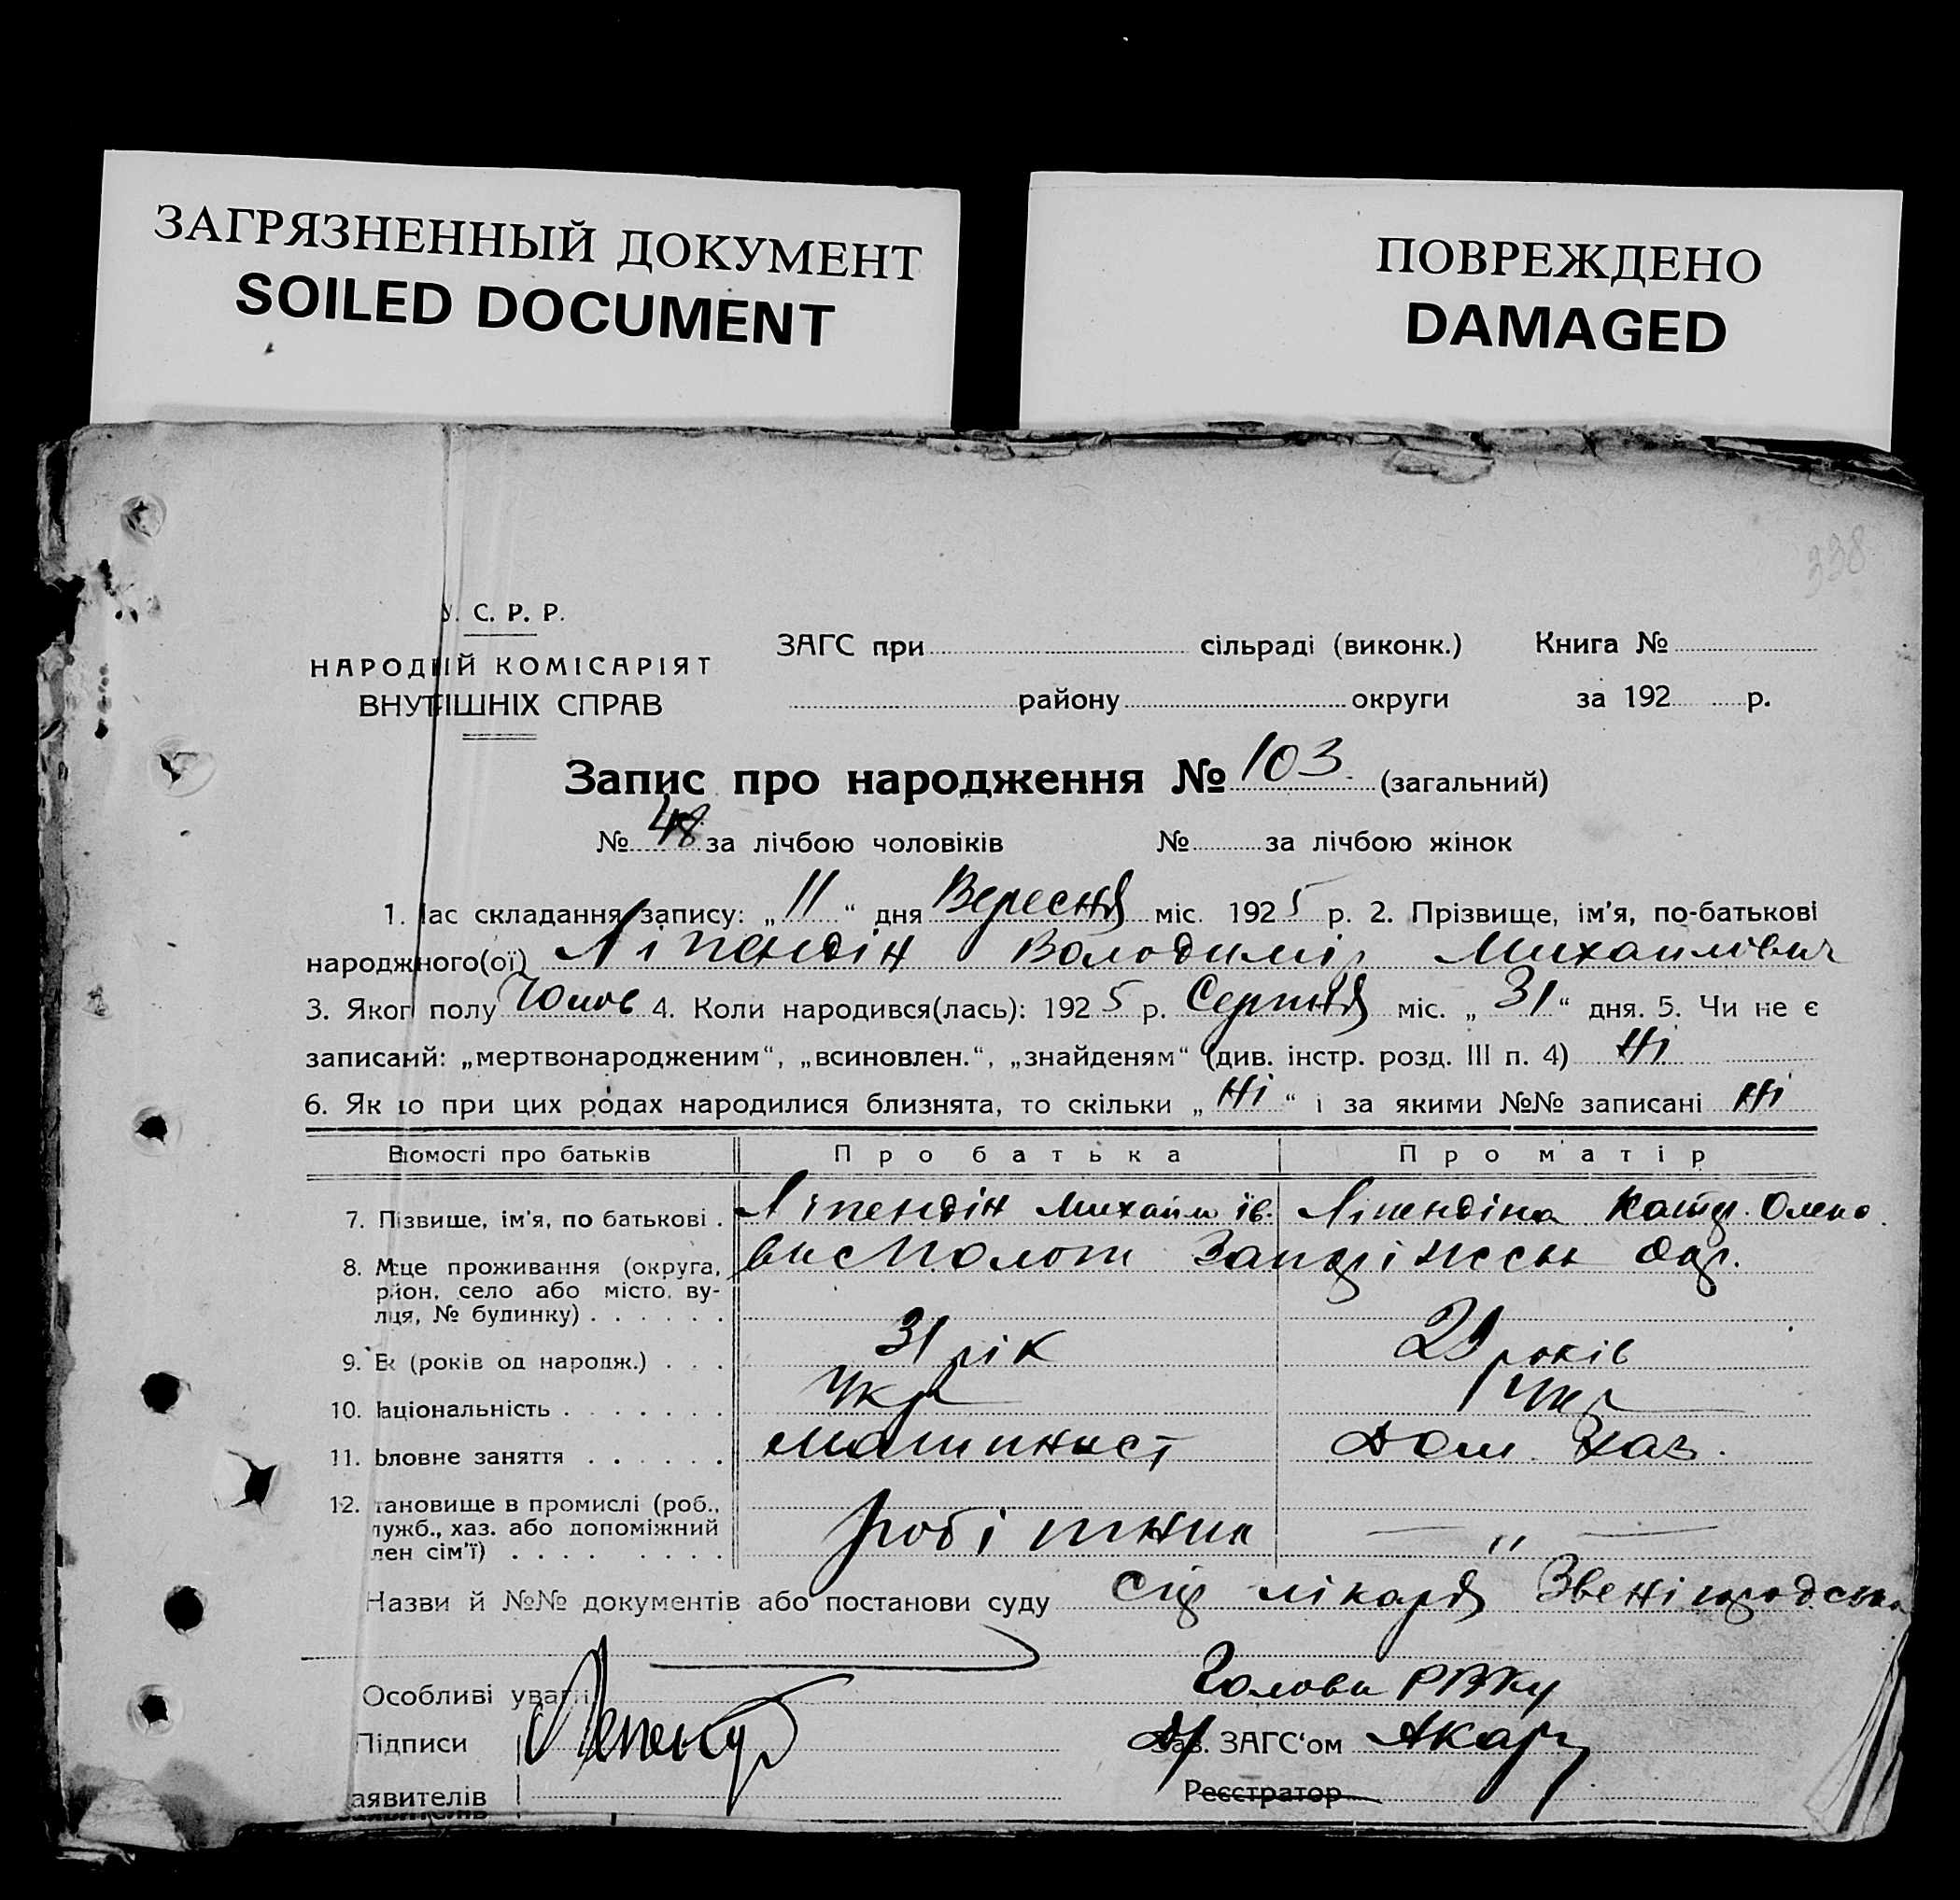 ЗАГРЯЗНЕННЫЙ ДОКУМЕНТ
SOILED DOCUMENT
ПОВРЕЖДЕНО
DAMAGED
338
У. С. Р. Р.
НАРОДНІЙ КОМІСАРІЯТ
ВНУТІШНІХ СПРАВ
ЗАГС при сільраді (виконк.) Книга №
району округи за 192 р.
Запис про народження № 103 (загальний)
№ 48 за лічбою чоловіків № за лічбою жінок
1. Час складання запису: „11“ дня Вересня міс. 1925 р. 2. Прізвище, ім'я, по-батькові
народжного(ої) Ліпендін Володимір Михайлівич
3. Яког полу Чолов 4. Коли народився(лась): 1925 р. Серпня міс. „31“ дня. 5. Чи не є
записаний: „мертвонародженим“, „всиновлен.“, „знайденям“ (див. інстр. розд. III п. 4) Ні
6. Як о при цих родах народилися близнята, то скільки „Ні“ і за якими №№ записані Ні
Відомості про батьків Про батька Про матір
7. Пізвище, ім'я, по батькові . Ліпендін Михайло ів. Ліпендіна Катер. Олекс.
8. Мце проживання (округа,
рйон, село або місто, ву-
лця, № будинку) Запоріжськ окр.
9. Вк (років од народж.) 31 рік 29 років
10. Національність Укр Укр
11. Головне заняття машиніст Дом. Хаз.
12. тановище в промислі (роб.,
лужб., хаз. або допоміжний
лен сім'ї) робітник — „ —
Назви й №№ документів або постанови суду лікаря Звенігородська
Особливі уваги Голова РВКу
Підписи Зав. ЗАГС'ом
аявителів Реєстратор